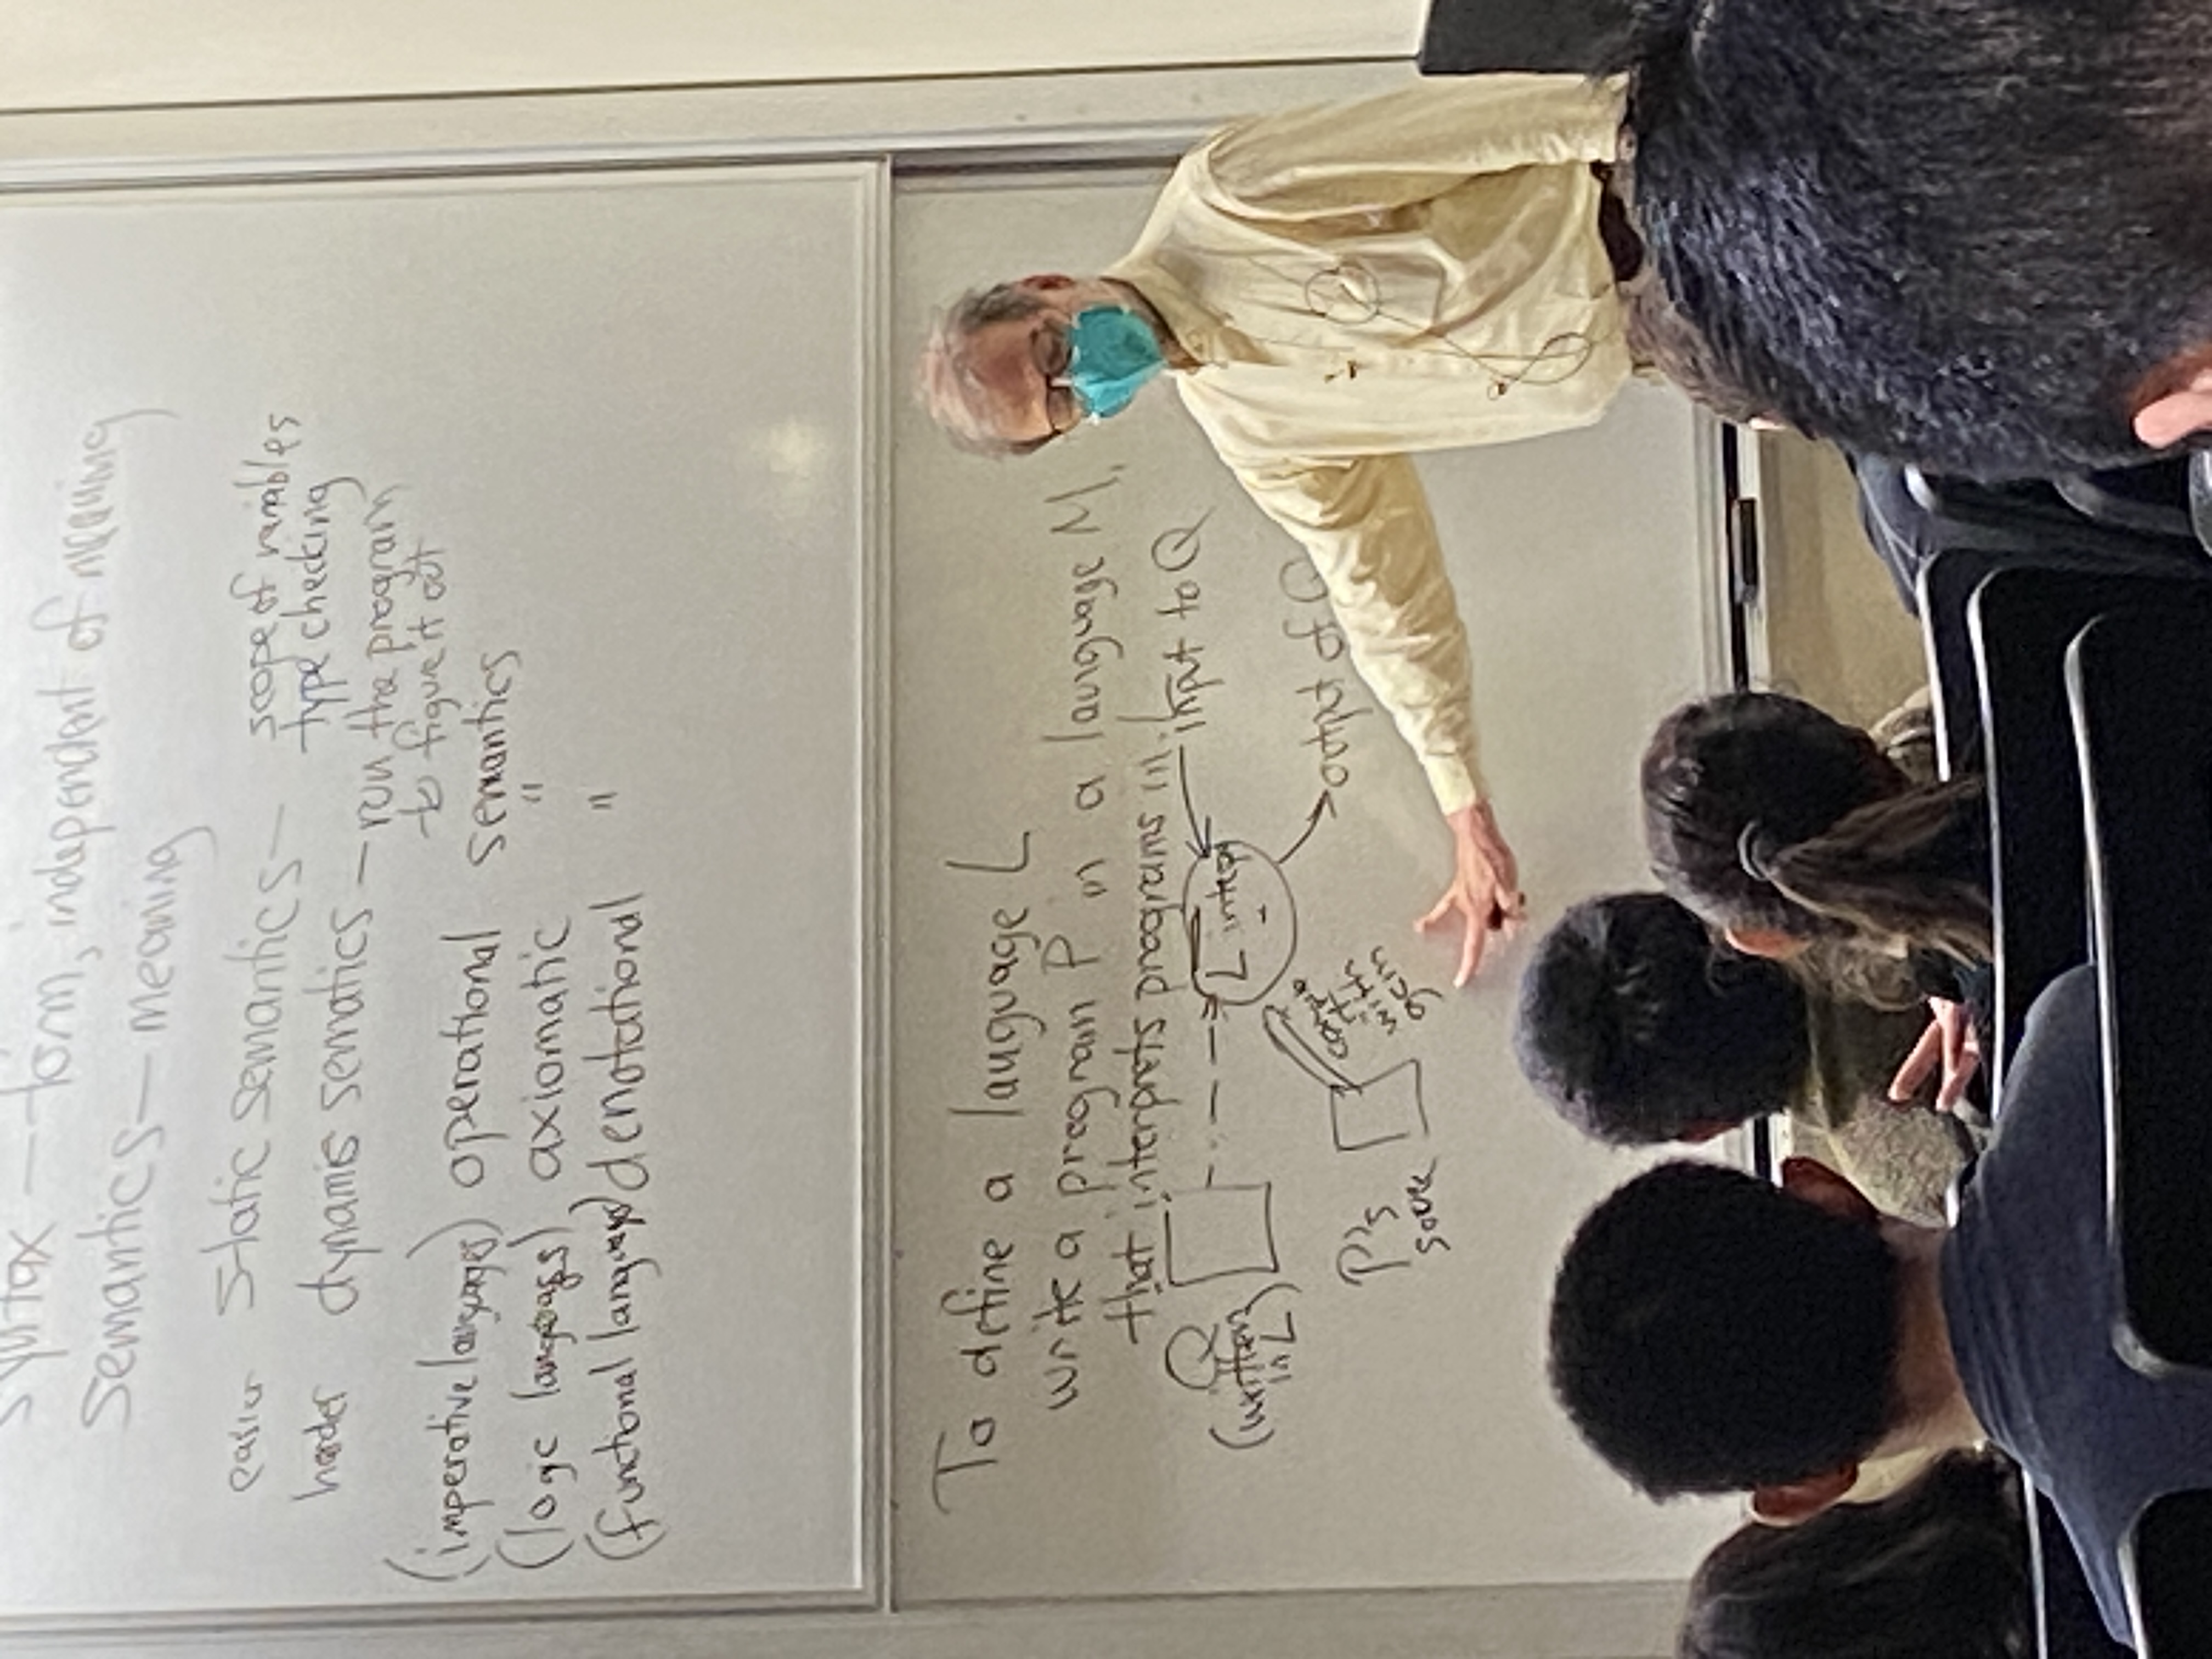 syntax — form, independent of meaning
Semantics — meaning
easier static semantics — scope of variables
type checking
harder dynamic sematics — run the program
to figure it out
(imperative languages) operational semantics
(logic languages) axiomatic "
(functional language) denotational "
To define a language L
write a program P in a language M,
that interprets programs in L
Q
(written
in L)
L interp
input to Q
output of Q
P's
compile
it
with